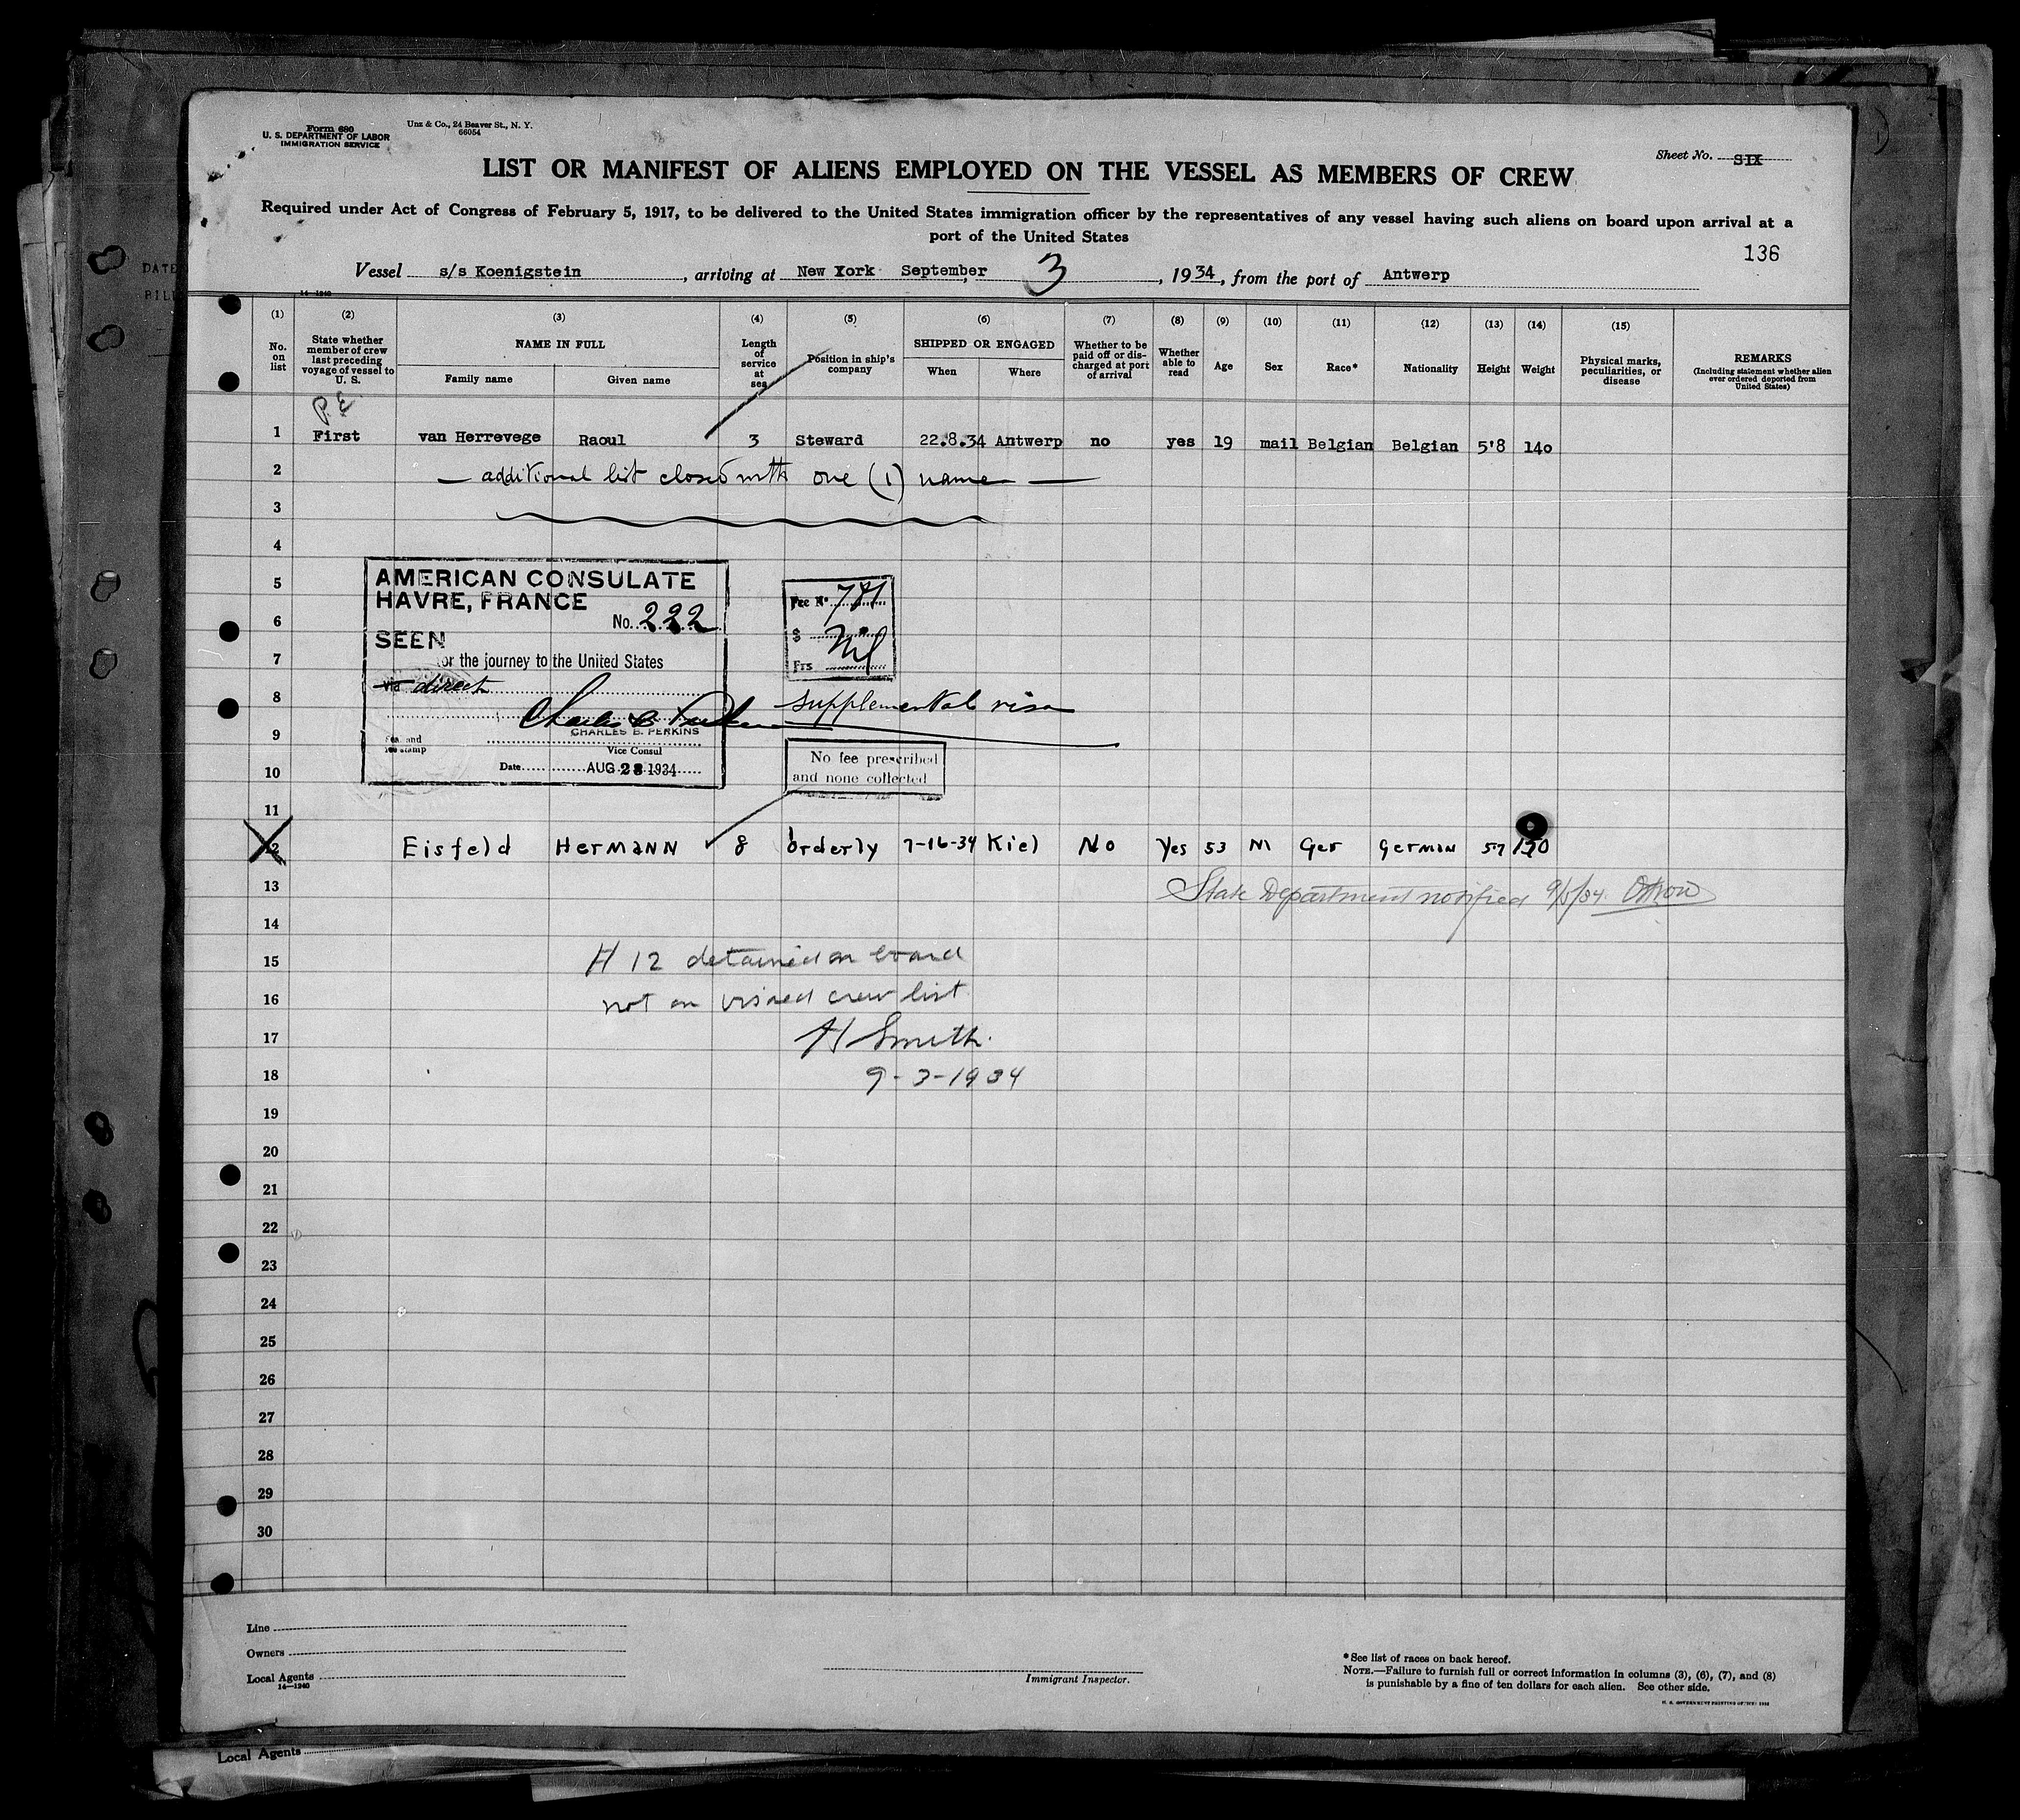 Form 680
U. S. DEPARTMENT OF LABOR
IMMIGRATION SERVICE
Unz & Co., 24 Beaver St., N. Y.
66054
Sheet No. SIX
LIST OR MANIFEST OF ALIENS EMPLOYED ON THE VESSEL AS MEMBERS OF CREW
Required under Act of Congress of February 5, 1917, to be delivered to the United States immigration officer by the representatives of any vessel having such aliens on board upon arrival at a
port of the United States
136
Vessel s/s Koenigstein, arriving at New York September 3, 1934, from the port of Antwerp
14-1240
(1) (2) (3) (4) (5) (6) (7) (8) (9) (10) (11) (12) (13) (14) (15)
No. on list
State whether member of crew last preceding voyage of vessel to U. S.
NAME IN FULL
Family name Given name
Length of service at sea
Position in ship's company
SHIPPED OR ENGAGED
When Where
Whether to be paid off or discharged at port of arrival
Whether able to read
Age
Sex
Race*
Nationality
Height
Weight
Physical marks, peculiarities, or disease
REMARKS
(Including statement whether alien ever ordered deported from United States)
P.E
1 First van Herrevege Raoul 3 Steward 22.8.34 Antwerp no yes 19 mail Belgian Belgian 5'8 14o
2 — additional list closed with one (1) name —
3
4
5
6
7
8
9
10
11
AMERICAN CONSULATE
HAVRE, FRANCE
No. 222
SEEN
or the journey to the United States
via direct
CHARLES B. PERKINS
Vice Consul
Seal and
fee stamp
Date AUG 28 1934
Fee No 781
$ Nil
Frs
supplemental visa
No fee prescribed
and none collected
12 Eisfeld Hermann 8 orderly 7-16-34 Kiel No Yes 53 M Ger German 57 150
13 State Department notified 9/5/34.
14
15 # 12 detained on board
16 not on visaed crew list
17 H Smith.
18 9-3-1934
19
20
21
22
23
24
25
26
27
28
29
30
Line
Owners
Local Agents
14-1240
Immigrant Inspector.
*See list of races on back hereof.
NOTE.—Failure to furnish full or correct information in columns (3), (6), (7), and (8)
is punishable by a fine of ten dollars for each alien. See other side.
Local Agents